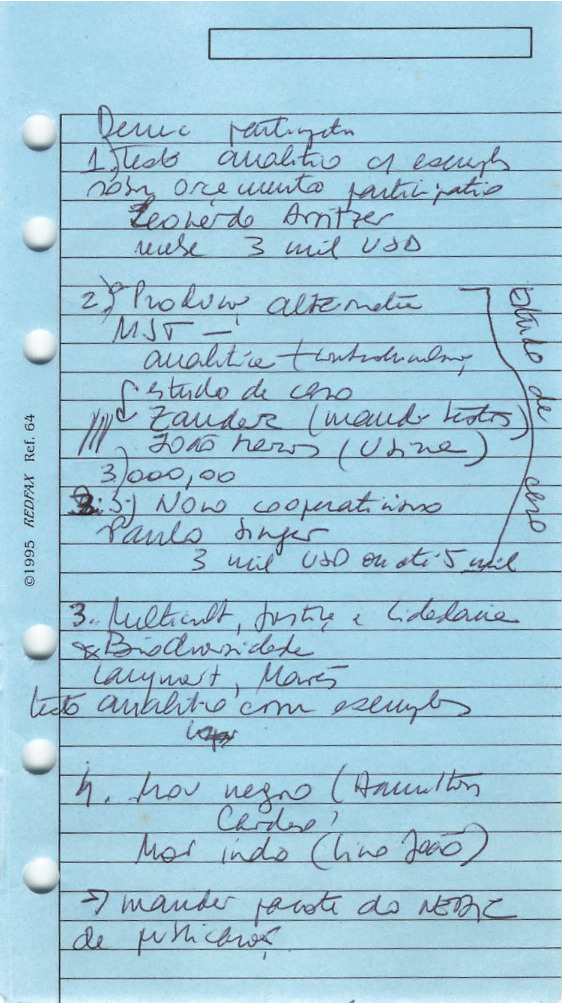 Democ participativa
1) texto analitico c/ exemplos
sobre orçamento participativo
Leonardo Avritzer
recebe 3 mil USD
2) Produção alternativa
MST –
analitica +
estudo de caso
Zander (mandar textos)
João Neves (Usina)
3)000,00
Novo cooperativismo
Paulo Singer
3 mil USD ou até 5 mil
estudo de caso
3. Multicult, justiça e cidadania
Biodiversidade
Laymert, Marés
texto analitico com exemplos
4. Mov negro (Hamilton
Cardoso)
Mov indo (Lino João)
→ mandar pacote do
de publicações
©1995 REDFAX Ref. 64